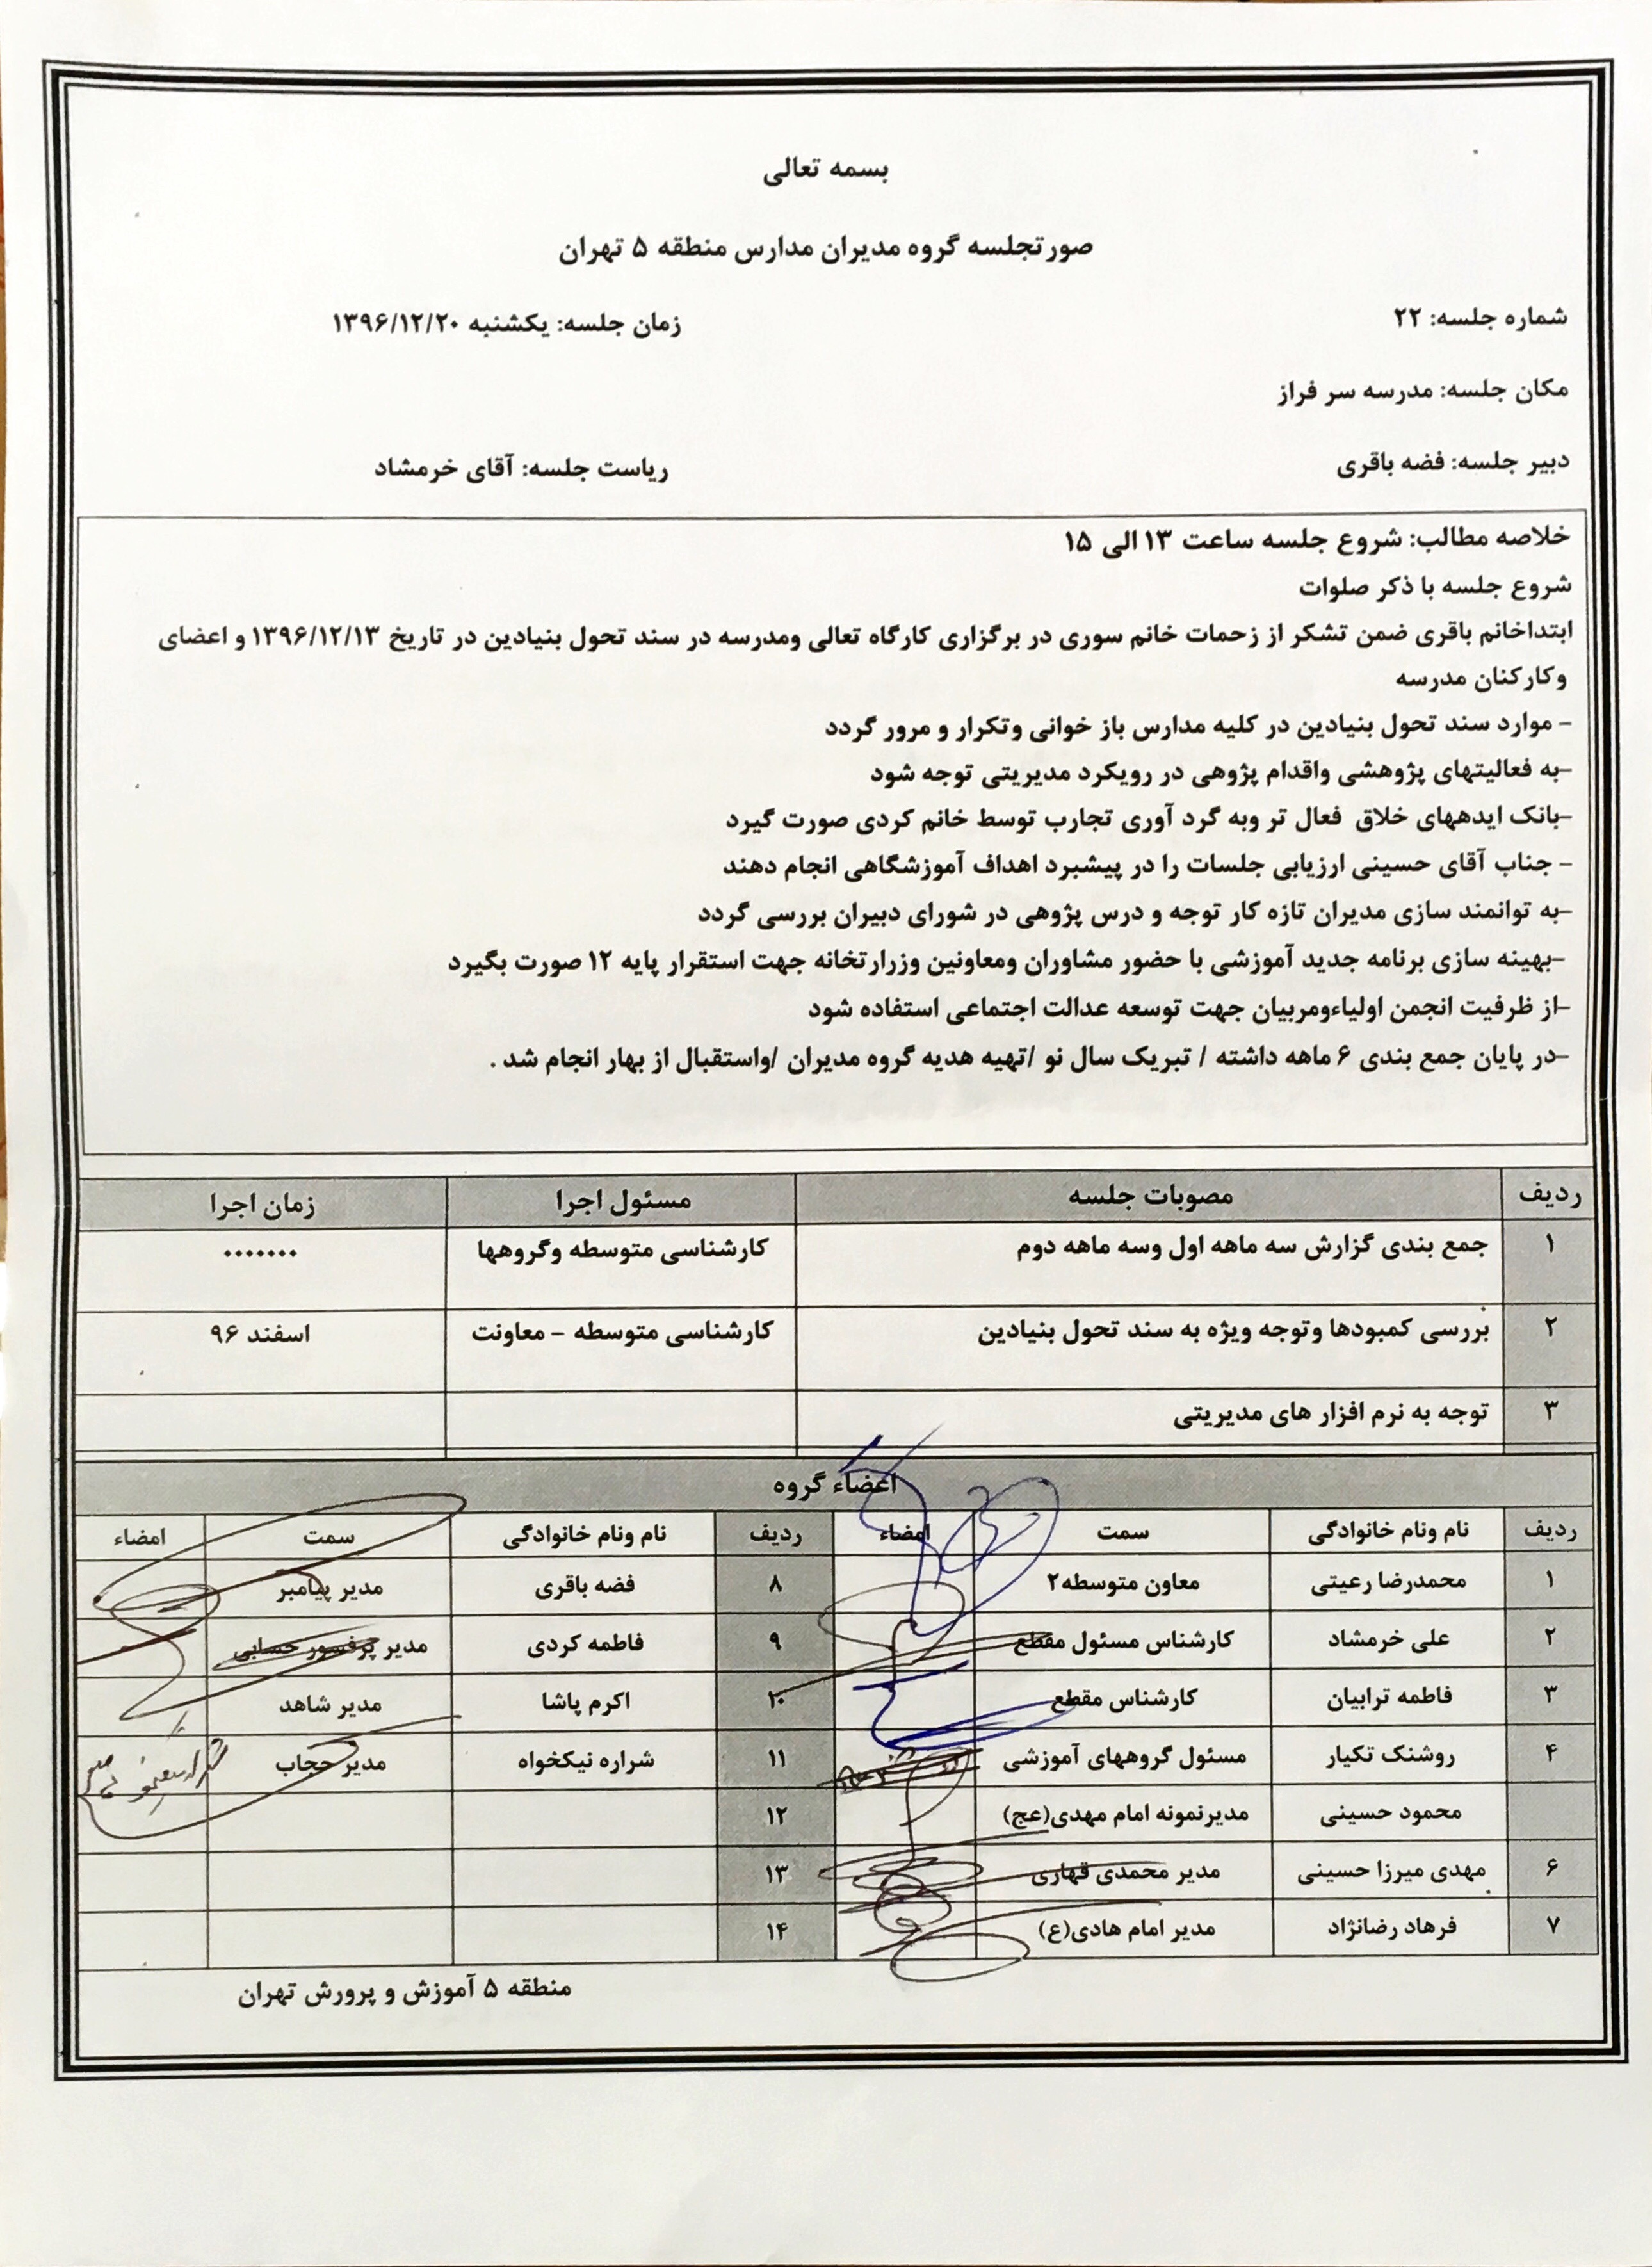 بسمه تعالی
صورتجلسه گروه مدیران مدارس منطقه ۵ تهران
شماره جلسه: ۲۲ زمان جلسه: یکشنبه ۱۳۹۶/۱۲/۲۰
مکان جلسه: مدرسه سر فراز
دبیر جلسه: فضه باقری ریاست جلسه: آقای خرمشاد
خلاصه مطالب: شروع جلسه ساعت ۱۳ الی ۱۵
شروع جلسه با ذکر صلوات
ابتداخانم باقری ضمن تشکر از زحمات خانم سوری در برگزاری کارگاه تعالی ومدرسه در سند تحول بنیادین در تاریخ ۱۳۹۶/۱۲/۱۳ و اعضای
وکارکنان مدرسه
- موارد سند تحول بنیادین در کلیه مدارس باز خوانی وتکرار و مرور گردد
-به فعالیتهای پژوهشی واقدام پژوهی در رویکرد مدیریتی توجه شود
-بانک ایدههای خلاق فعال تر وبه گرد آوری تجارب توسط خانم کردی صورت گیرد
- جناب آقای حسینی ارزیابی جلسات را در پیشبرد اهداف آموزشگاهی انجام دهند
-به توانمند سازی مدیران تازه کار توجه و درس پژوهی در شورای دبیران بررسی گردد
-بهینه سازی برنامه جدید آموزشی با حضور مشاوران ومعاونین وزرارتخانه جهت استقرار پایه ۱۲ صورت بگیرد
-از ظرفیت انجمن اولیاءومربیان جهت توسعه عدالت اجتماعی استفاده شود
-در پایان جمع بندی ۶ ماهه داشته / تبریک سال نو /تهیه هدیه گروه مدیران /واستقبال از بهار انجام شد .
ردیف مصوبات جلسه مسئول اجرا زمان اجرا
۱ جمع بندی گزارش سه ماهه اول وسه ماهه دوم کارشناسی متوسطه وگروهها ۰۰۰۰۰۰۰
۲ بررسی کمبودها وتوجه ویژه به سند تحول بنیادین کارشناسی متوسطه - معاونت اسفند ۹۶
۳ توجه به نرم افزار های مدیریتی
اعضاء گروه
ردیف نام ونام خانوادگی سمت امضاء ردیف نام ونام خانوادگی سمت امضاء
۱ محمدرضا رعیتی معاون متوسطه۲ ۸ فضه باقری مدیر پیامبر
۲ علی خرمشاد کارشناس مسئول مقطع ۹ فاطمه کردی مدیر پرفسور حسابی
۳ فاطمه ترابیان کارشناس مقطع ۱۰ اکرم پاشا مدیر شاهد
۴ روشنک تکیار مسئول گروههای آموزشی ۱۱ شراره نیکخواه مدیر حجاب
محمود حسینی مدیرنمونه امام مهدی(عج) ۱۲
۶ مهدی میرزا حسینی مدیر محمدی قهاری ۱۳
۷ فرهاد رضانژاد مدیر امام هادی(ع) ۱۴
منطقه ۵ آموزش و پرورش تهران